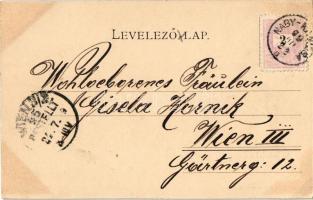 LEVELEZŐ-LAP.
NAGY-
Wohlgeborenes Fräulein
Gisela Hornik
Wien III
Gärtnerg: 12.